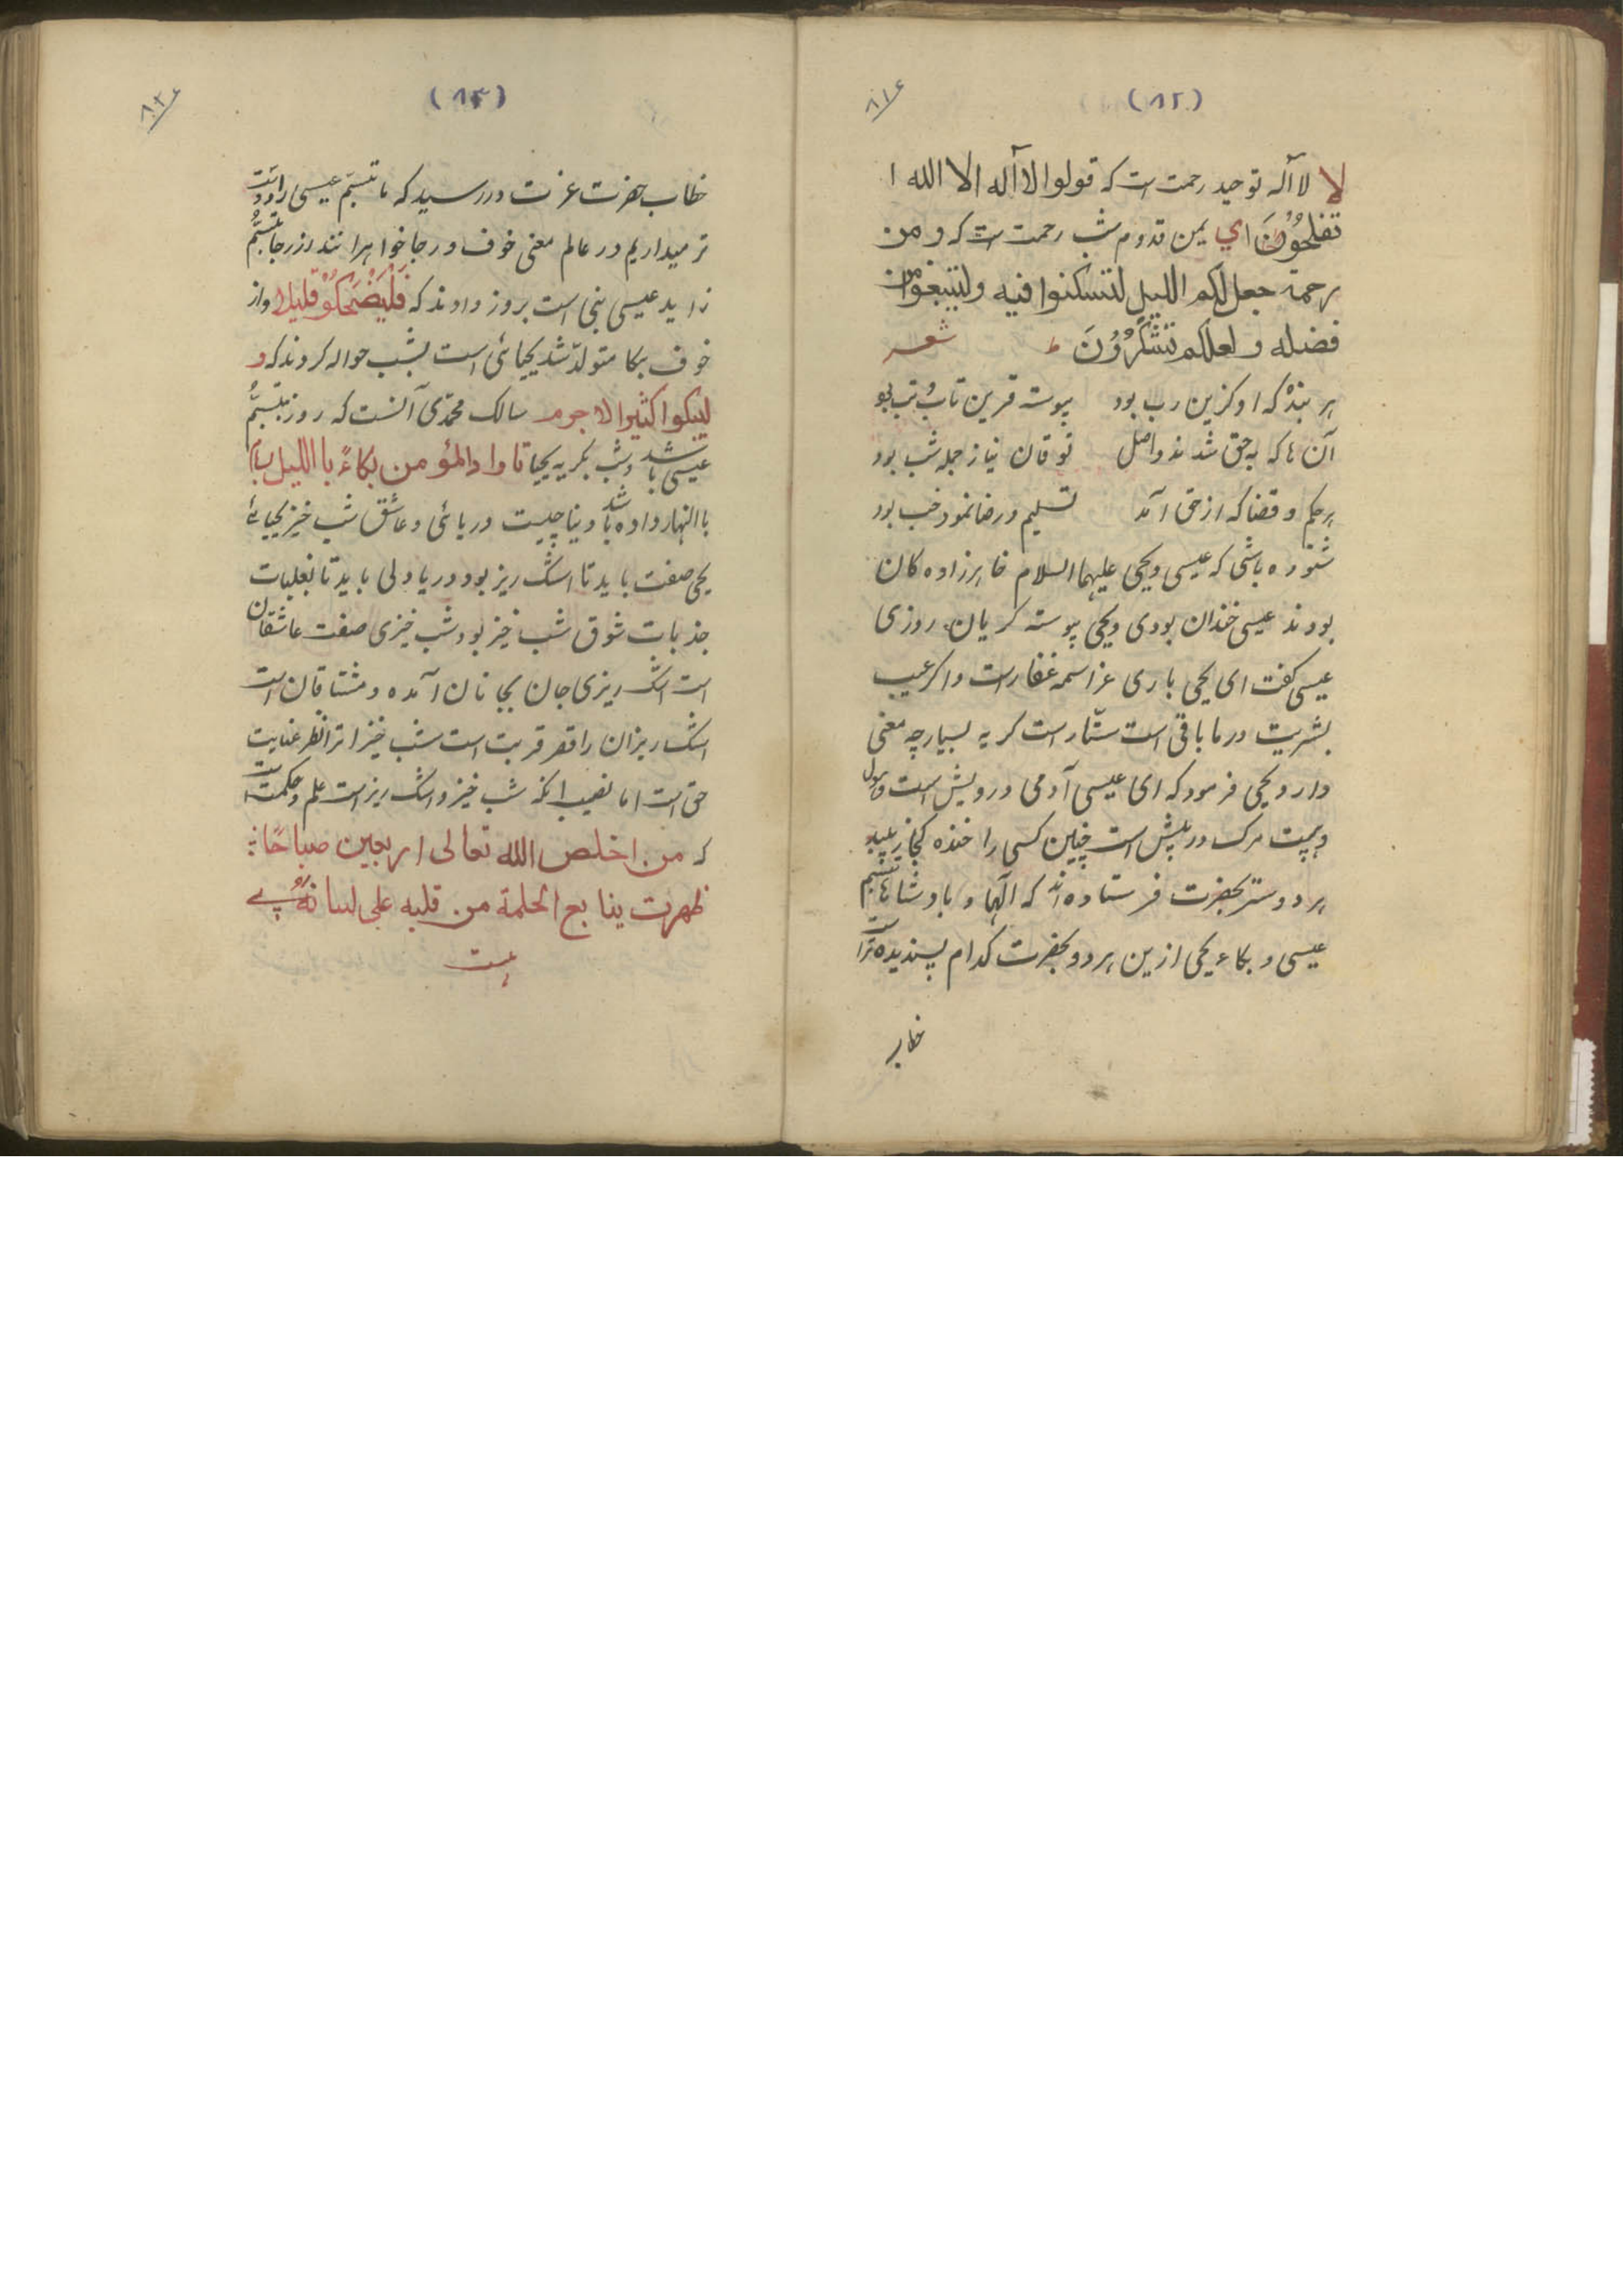 (۸۲)
۸۱۶
لا لا آله توحید رحمت است که قولوا لا آله الا الله ا
تفلحُوُنَ ای یمن قدوم شب رحمت است که و من
رحمة جعل لکم اللیل لتسکنوا فیه ولتبتغوا من
فضله و لعلکم تشکُرُوُنَ ط شعر
هر بندۀ که او کزین رب بود پیوسته قرین تاب و تب بود
آن ها که به حق شدند واصل نوقان نیاز جمله شب بود
هر حکم و قضا که از حق آمد تسلیم و رضا نمود خب بود
شنوده باشی که عیسی و یحیی علیهما السلام خاهرزاده کان
بودند عیسی خندان بودی و یحیی پیوسته کریان روزی
عیسی کفت ای یحیی باری عز اسمه غفار است و اکر عیب
بشریت در ما باقی است ستّار است کریه بسیار چه معنی
دارد یحیی فرمود که ای عیسی آدمی درویش است و هول
و هیبت مرک در پیش است چنین کسی را خنده کجا زیبد
هر دو سر بحضرت فرستاده اند که الها و بادشاها تبسم
عیسی و بکاء یحیی ازین هر دو بحضرت کدام پسندیده تر است
خطاب
(۸۳)
خطاب حضرت عزت در رسید که ما تبسّم عیسی را دوست
تر میداریم در عالم معنی خوف و رجا خواهرانند از رجا تبسّم
زاید عیسی بنی است بروز دادند که فَلْیَضْحَکُوْ قلیلا و از
خوف بکا متولّد شد یحیائی است بشب حواله کردند که و
لیبکوا کثیرا لا جرم سالک محمّدی آنست که روز تبسّم
عیسی باشد و شب بکریه یحیا تا داد المؤمن بکاءً با اللیل بسام
با النهار داده باشد دینا چیست دریائی و عاشق شب خیز یحیائے
یحیی صفت باید تا اشک ریز بود دریا دلی باید تا بغلبات
جذبات شوق شب خیز بود شب خیزی صفت عاشقان
است اشک ریزی جان بجانان آمده و مشتاقان است
اشک ریزان را قصر قربت است شب خیز انرا نظر عنایت
حق است اما نصیب انکه شب خیز و اشک ریز است علم و حکمت است
که من اخلص الله تعالی اربعین صباحًا
ظهرت ینابع الحکمة من قلبه علی لسانه پے